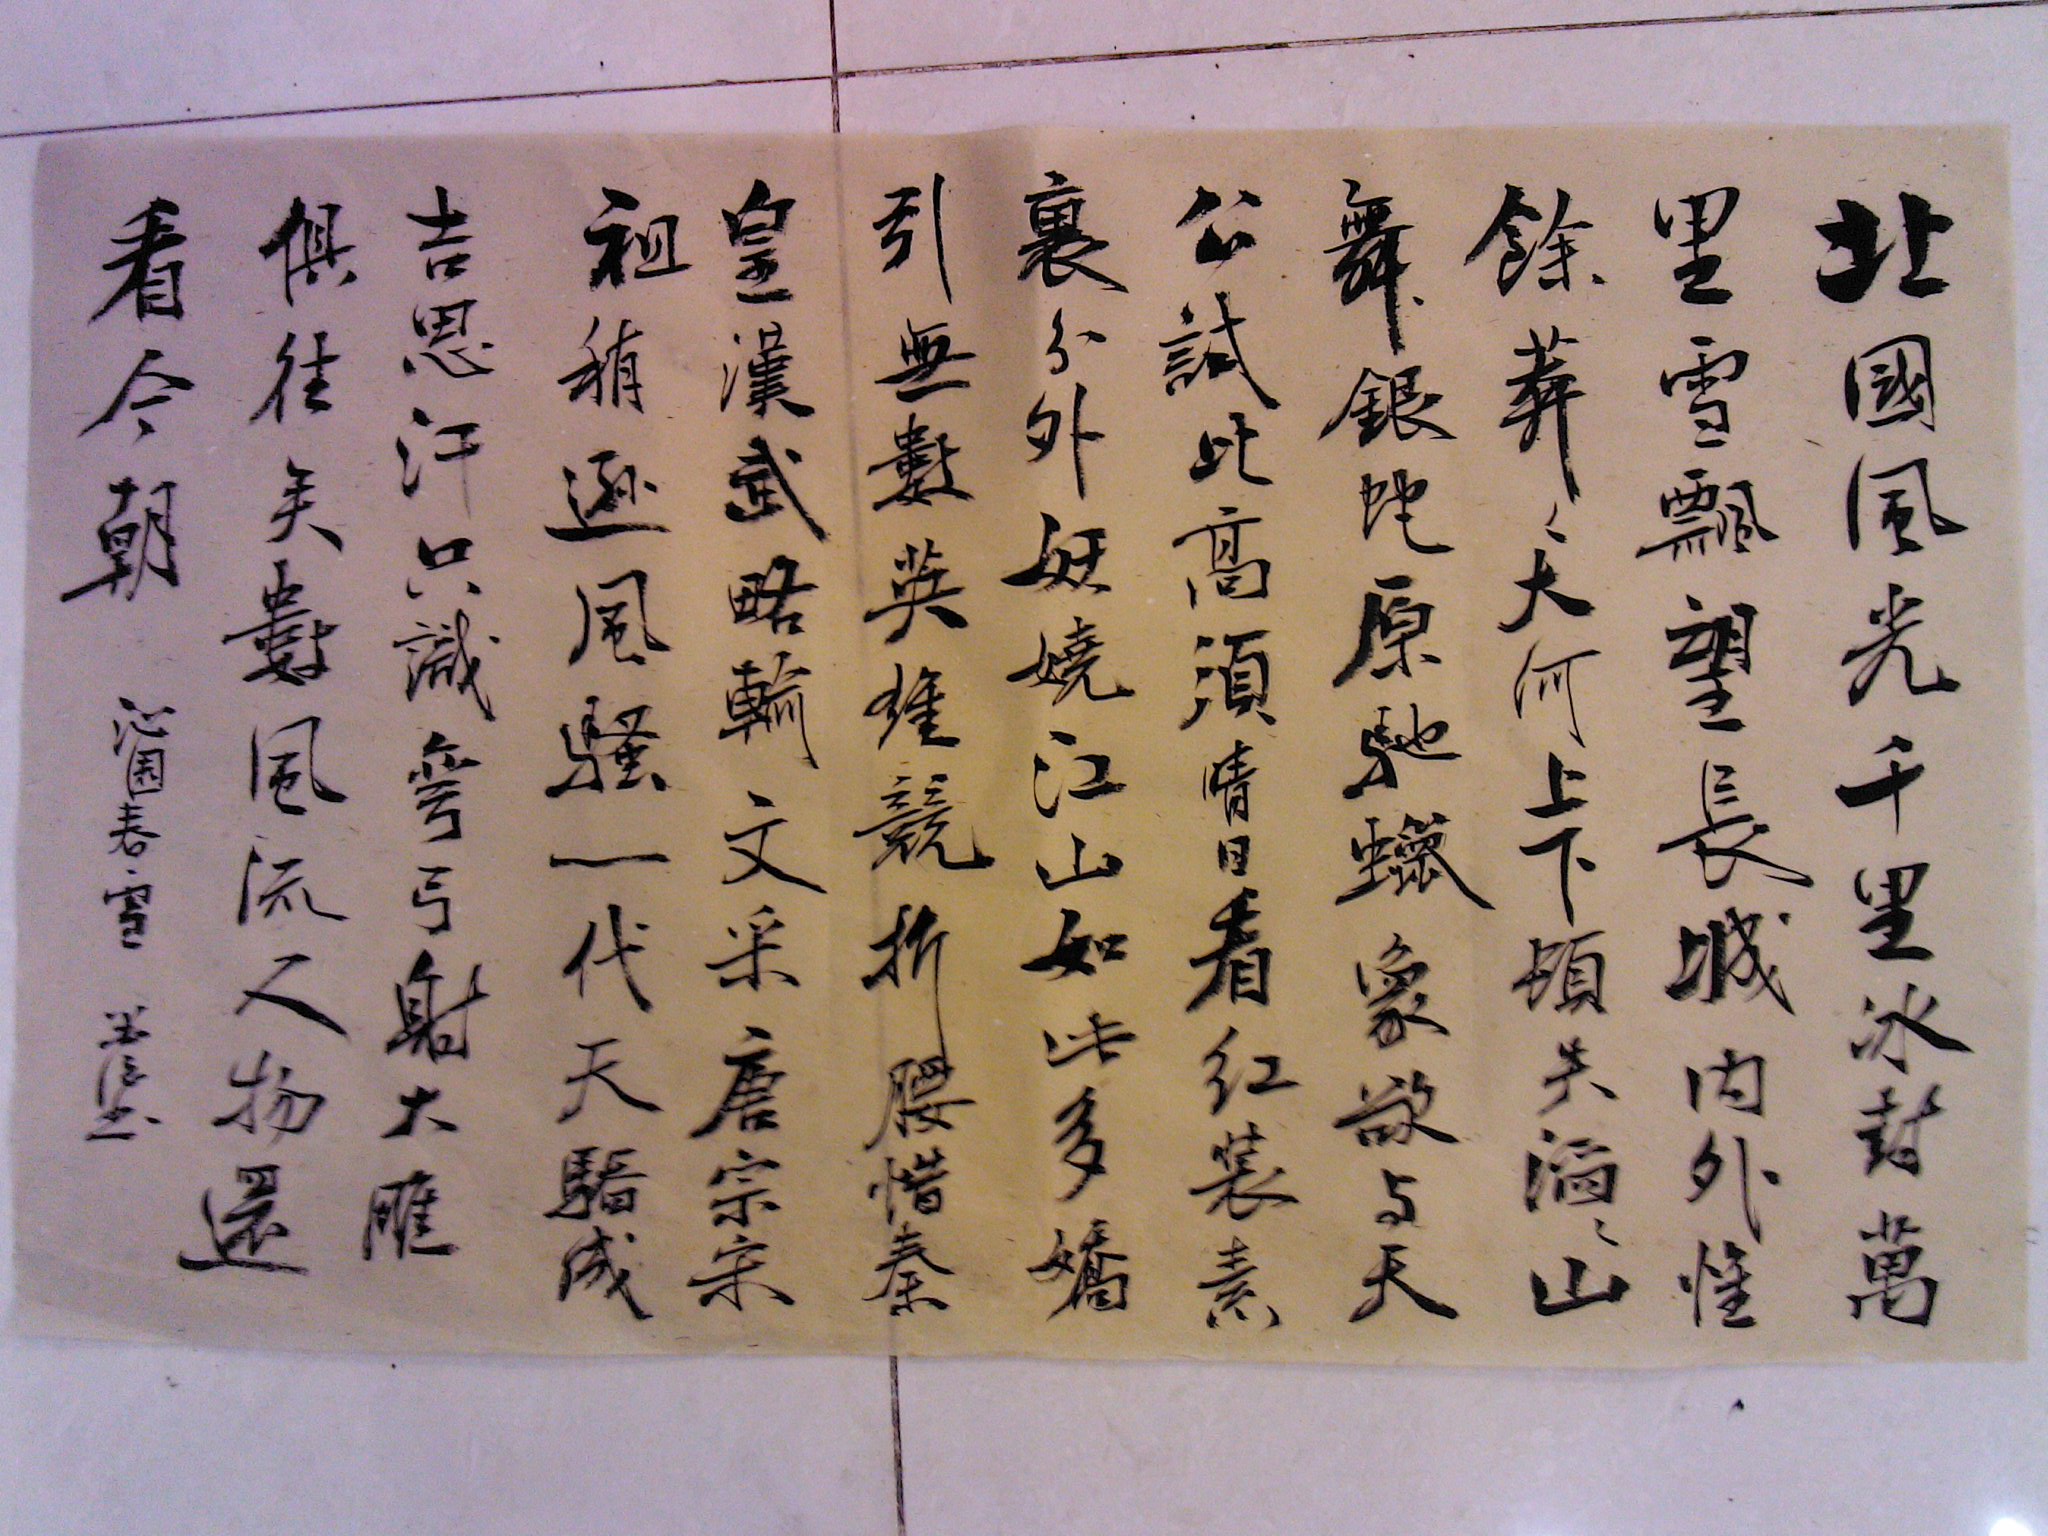 北國風光千里冰封萬
里雪飄望長城内外惟
餘莽〻大河上下頓失滔〻山
舞銀蛇原馳蠟象欲与天
公試比高須晴日看红装素
裹分外妖嬈江山如此多嬌
引無數英雄競折腰惜秦
皇漢武略輸文采唐宗宋
祖稍遜風騷一代天驕成
吉思汗只識彎弓射大雕
俱往矣數風流人物還
看今朝
沁園春雪